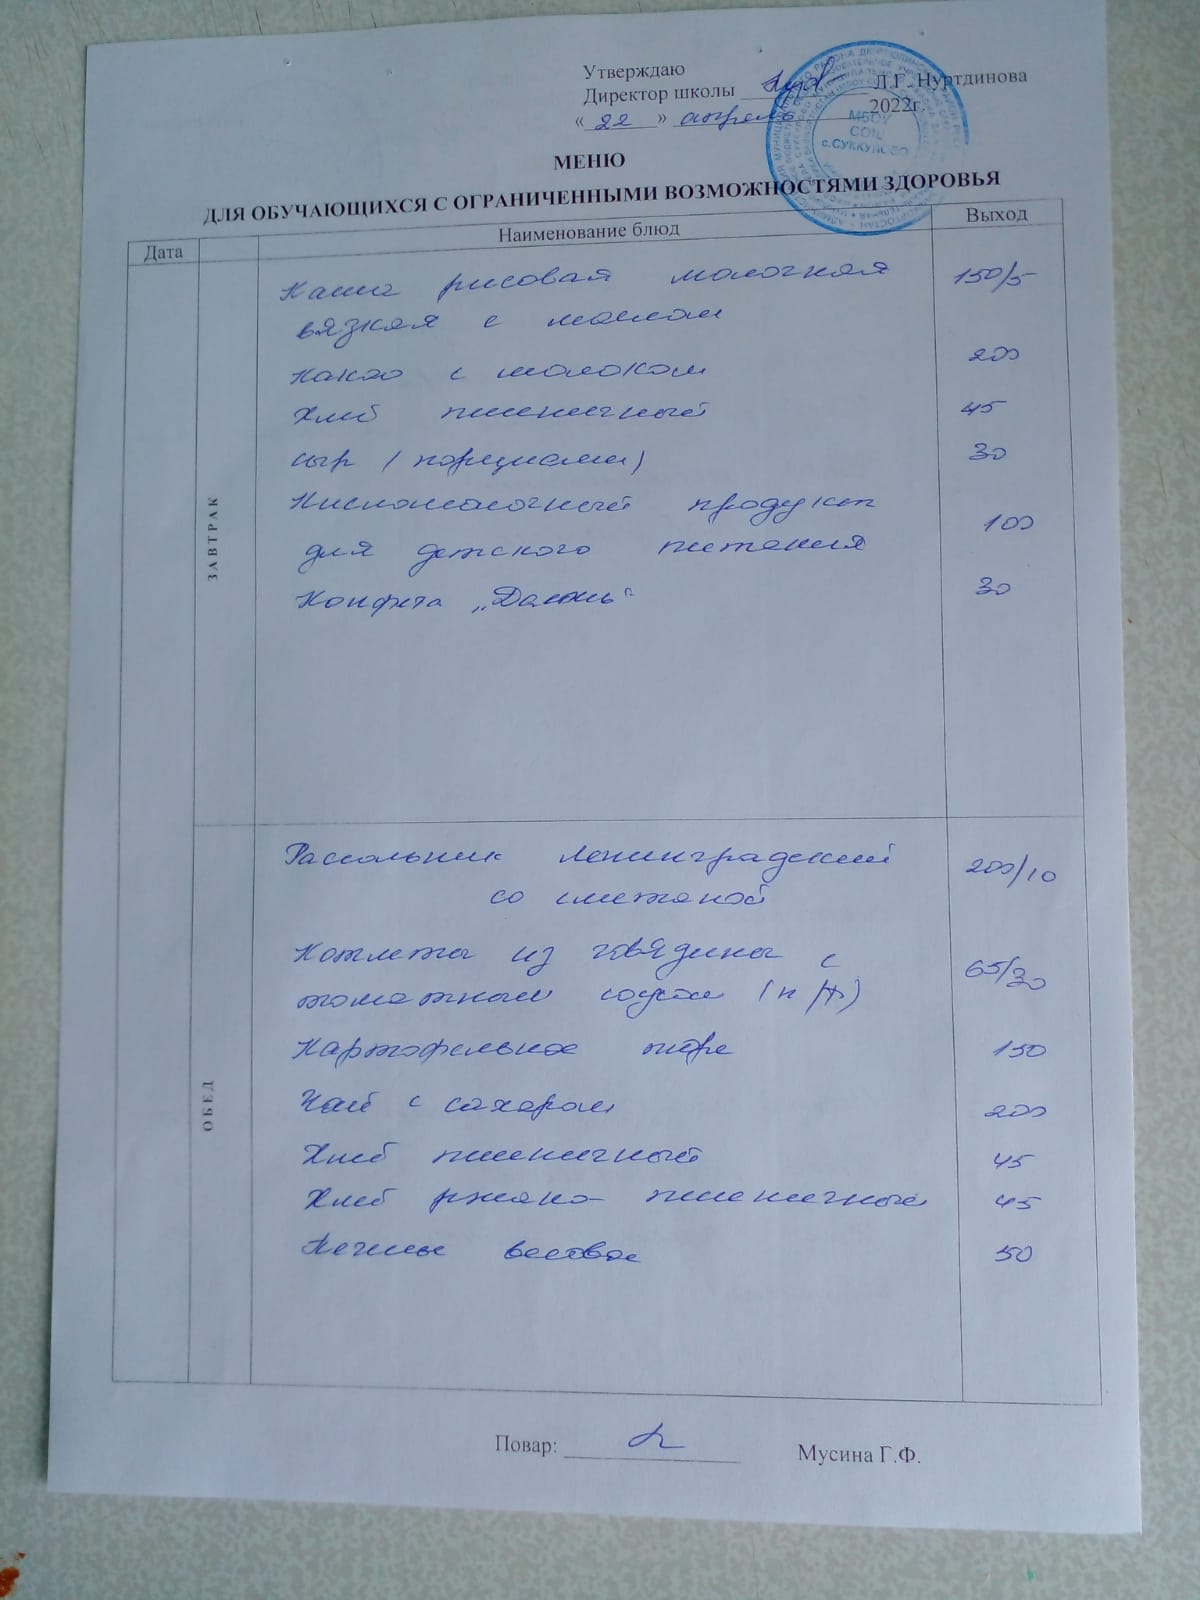 Утверждаю
Директор школы ___________ Л.Г. Нуртдинова
« 22 » апрель 2022г.
МЕНЮ
ДЛЯ ОБУЧАЮЩИХСЯ С ОГРАНИЧЕННЫМИ ВОЗМОЖНОСТЯМИ ЗДОРОВЬЯ
Дата Наименование блюд Выход
ЗАВТРАК
Каша рисовая молочная 150/5
вязкая с маслом
Какао с молоком 200
Хлеб пшеничный 45
сыр (порциями) 30
Кисломолочный продукт
для детского питания 100
Конфета 30
ОБЕД
Рассольник Ленинградский 200/10
со сметаной
Котлеты из говядины с 65/30
томатным соусом (п/ф)
Картофельное пюре 150
Чай с сахаром 200
Хлеб пшеничный 45
Хлеб ржано-пшеничный 45
Печенье весовое 50
Повар: ___________ Мусина Г.Ф.
МБОУ
СОШ
с.СУККУЛОВО